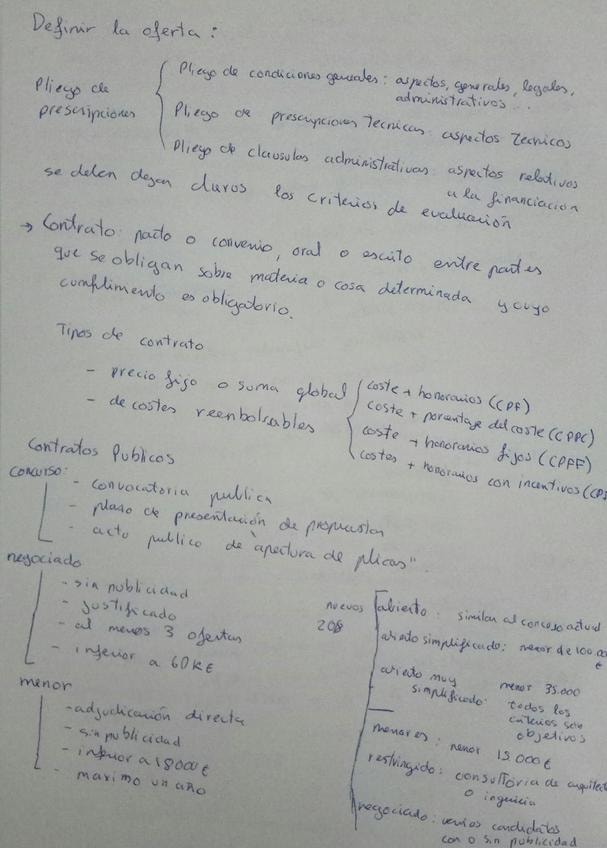 Definir la oferta:
Pliego de prescripciones
Pliego de condiciones generales: aspectos, generales, legales,
administrativos...
Pliego de prescripciones Tecnicas: aspectos Tecnicos
Pliego de clausulas administrativas: aspectos relativos
a la financiación
se deben dejar claros los criterios de evaluación
→ Contrato: pacto o convenio, oral o escrito entre partes
que se obligan sobre materia o cosa determinada y cuyo
cumplimento es obligatorio.
Tipos de contrato
- precio fijo o suma global
- de costes reenbolsables
coste + honorarios (CPF)
coste + porcentaje del coste (CPPC)
coste + honorarios fijos (CPFF)
costes + honorarios con incentivos
Contratos Publicos
concurso:
- convocatoria publica
- plaso de presentación de propuestas
- acto publico de "apertura de plicas".
negociado
- sin publicidad
- justificado
- al menos 3 ofertas
- inferior a 60K€
menor
- adjudicación directa
- sin publicidad
- inferior a 18000€
- maximo un año
nuevos
208
abierto: similar al concurso actual
abierto simplificado: menor de 100.00
€
abierto muy menor 35.000
simplificado: todos los
criterios son
objetivos
menores: menor 15 000€
restringido: consultoria de
o
negociado: varios candidatos
con o sin publicidad